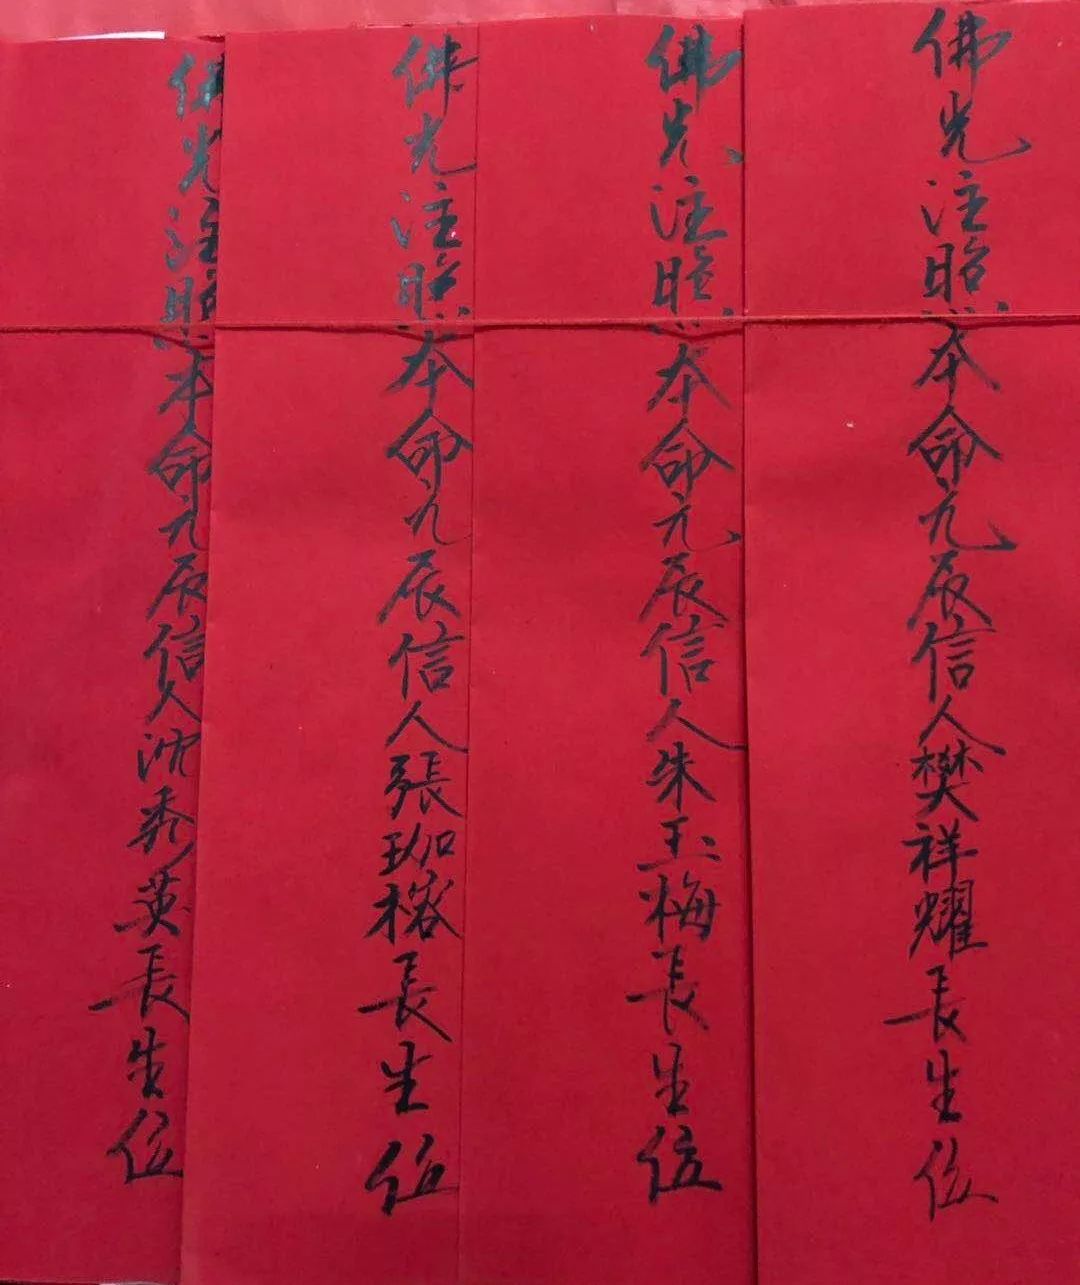 佛光注照本命元辰信人樊祥耀長生位
佛光注照本命元辰信人朱玉梅長生位
佛光注照本命元辰信人張珈榕長生位
佛光注照本命元辰信人沈秀英長生位